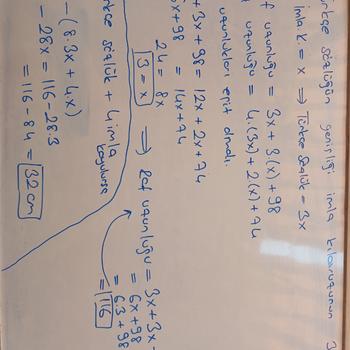 sözlüğün genişliği imla kılavuzunun 3
imla k. = x ⇒ Türkçe Sözlük = 3x
f uzunluğu = 3x + 3.(x) + 98
f uzunluğu = 4.(3x) + 2(x) + 74
uzunlukları eşit olmalı.
+ 3x + 98 = 12x + 2x + 74
6x + 98 = 14x + 74
24 = 8x
3 = x ⇒ Raf uzunluğu = 3x + 3x
= 6x + 98
= 6.3 + 98
= 116
sözlük + 4 imla
koyulursa
- (8.3x + 4.x)
- 28x = 116 - 28.3
= 116 - 84 = 32 cm